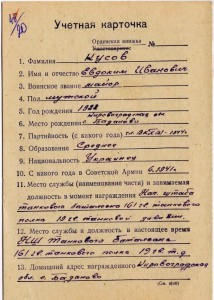 Учетная карточка
Орденская книжка
Удостоверение №
1. Фамилия Нусов
2. Имя и отчество Евдоким Иванович
3. Воинское звание майор
4. Пол мужской
5. Год рождения 1922
6. Место рождения
7. Партийность (с какого года)
8. Образование Среднее
9. Национальность Украинец
10. С какого года в Советской Армии 6.1941г.
11. Место службы (наименование части) и занимаемая
должность в момент награждения Нач. штаба
танкового батальона 161 гв. танкового
полка 19 гв. танковой
12. Место службы и должность в настоящее время
НШ Танкового Батальона
161 гв. танкового полка 19 гв. т.д.
13. Домашний адрес награжденного Кировоградская
обл. с.
(См. н/об)